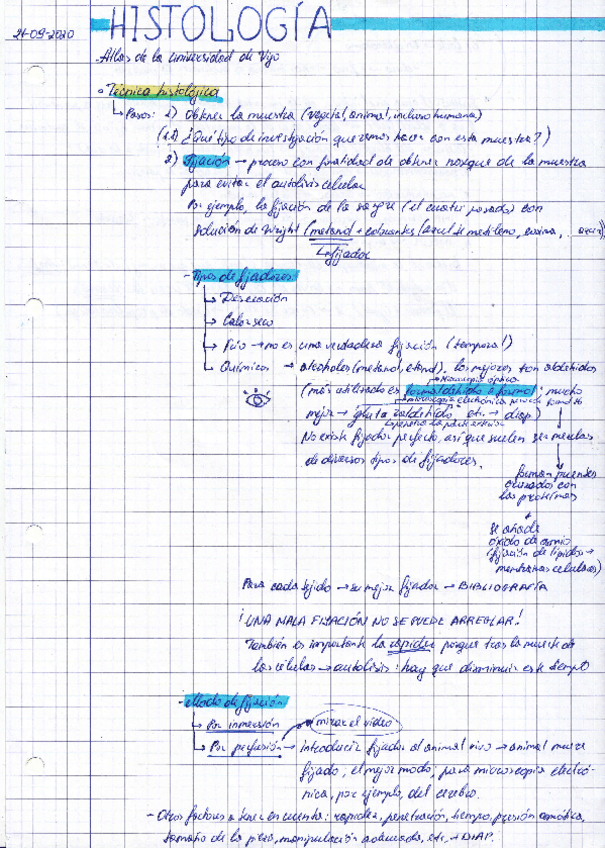 21-09-2020
HISTOLOGÍA
Atlas de la universidad de Vigo
Técnica histológica
Pasos: 1) Obtener la muestra (vegetal, animal, incluso humana)
¿Qué tipo de investigación queremos hacer con esta muestra?)
2) Fijación → proceso con finalidad de obtener de la muestra
para evitar el autolisis celular
Por ejemplo, la fijación de la sangre (el cuatri pasado) con
solución de Wright (metanol + colorantes (azul de metileno, eosina,
fijador
- Tipos de fijadores:
Desecación
Calor seco
Frío → no es una verdadera fijación (temporal)
Químicos → alcoholes (metanol, etanol). Los mejores son aldehidos
microscopía óptica
(más utilizado es formaldehido o formol; mucho
microscopía electrónica
mejor → glutaraldehido etc. → diap)
No existe fijador perfecto, así que suelen ser mezclas
de diversos tipos de fijadores.
forman puentes
cruzados con
las proteínas
+
se añade
óxido de osmio
(fijación de lípidos →
membranas celulares)
Para cada tejido → su mejor fijador → BIBLIOGRAFÍA
¡UNA MALA FIJACIÓN NO SE PUEDE ARREGLAR!
También es importante la rapidez porque tras la muerte de
las células → autolisis: hay que disminuir este tiempo
- Modo de fijación:
Por inmersión mirar el vídeo
Por perfusión → introducir fijador al animal vivo → animal muere
fijado; el mejor modo; para microscopía electró-
nica, por ejemplo, del cerebro.
- Otros factores a tener en cuenta: rapidez, penetración, tiempo, presión osmótica,
tamaño de la pieza, manipulación adecuada, etc. → DIAP.